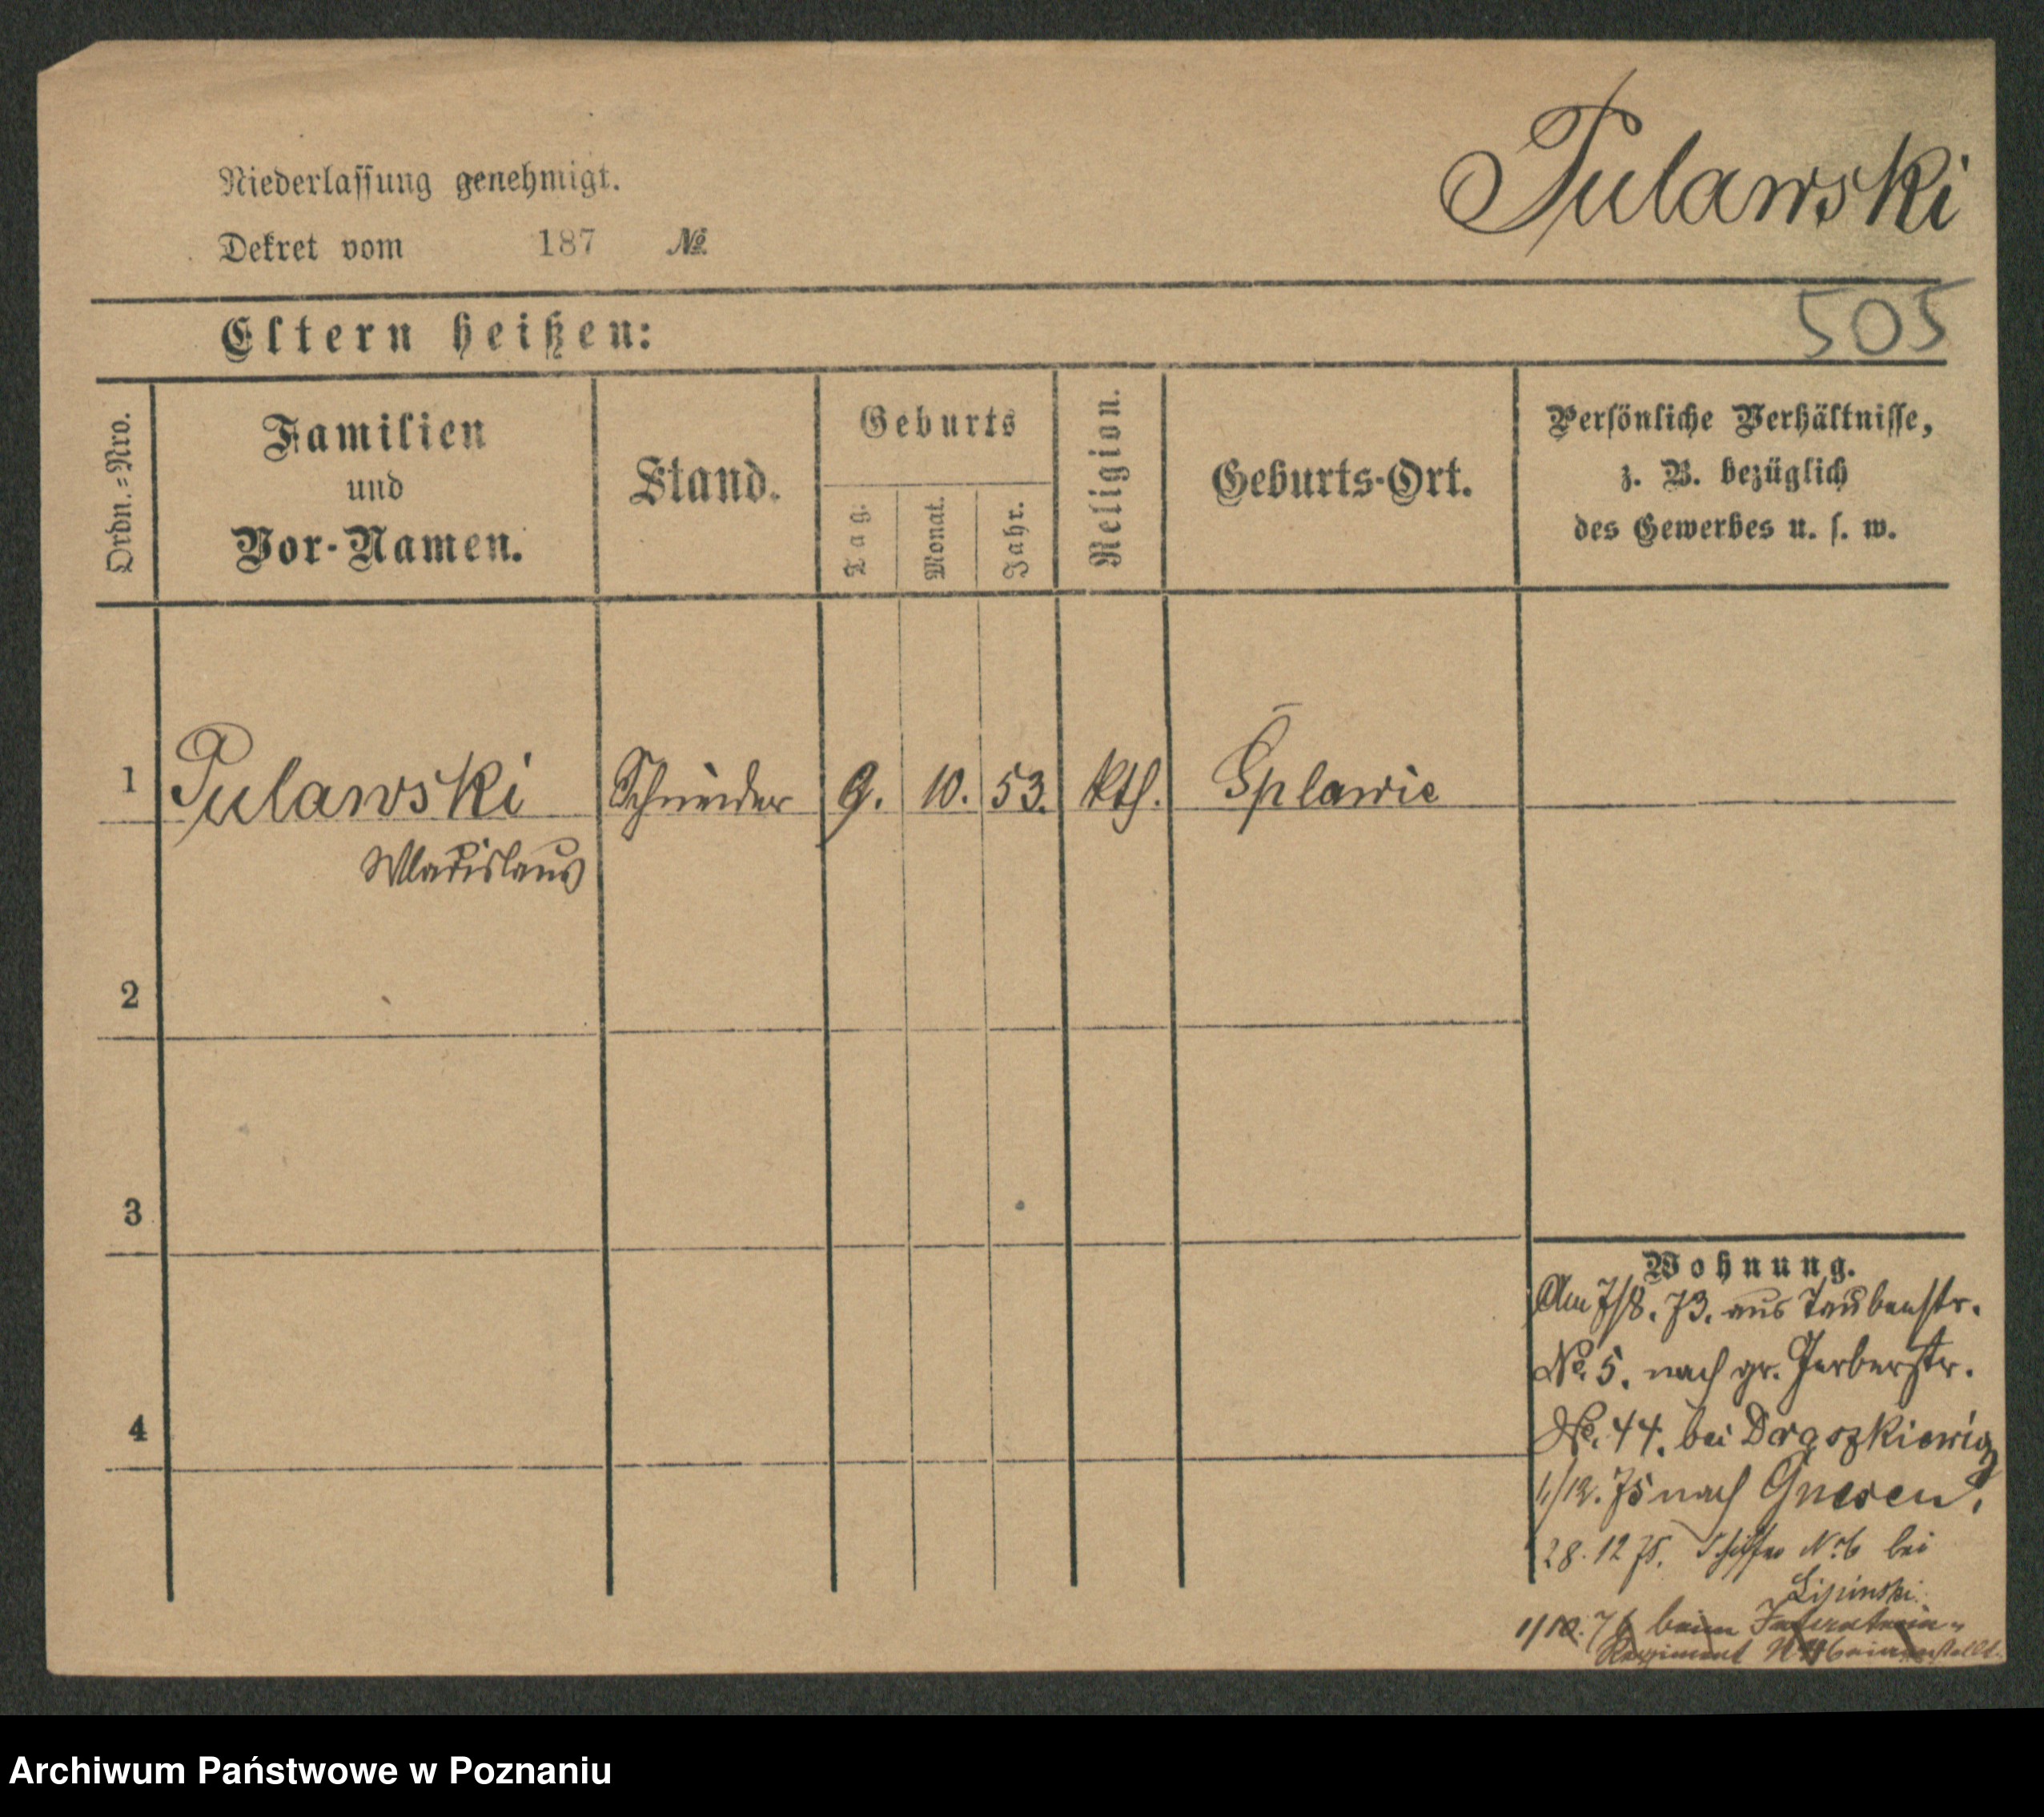 Pulawski
Niederlassung genehmigt.
Dekret vom 187 №
505
Eltern heißen:
Ordn.=Nro.
Familien
und
Vor-Namen.
Stand.
Geburts
Tag.
Monat.
Jahr.
Religion.
Geburts-Ort.
Persönliche Verhältnisse,
z. B. bezüglich
des Gewerbes u. s. w.
1 Pulawski Schneider 9. 10. 53. kth. Splawie
Wladislaus
2
3
4
Wohnung.
Am 7/8. 73. aus Taubenstr.
No. 5. nach gr. Gerberstr.
No. 44. bei Draszkiewicz
1/12. 75 nach Gnesen.
28. 12 75. No 6 bei
Lipinski.
1/10. 76 beim Infanterie-
Regiment
Archiwum Państwowe w Poznaniu